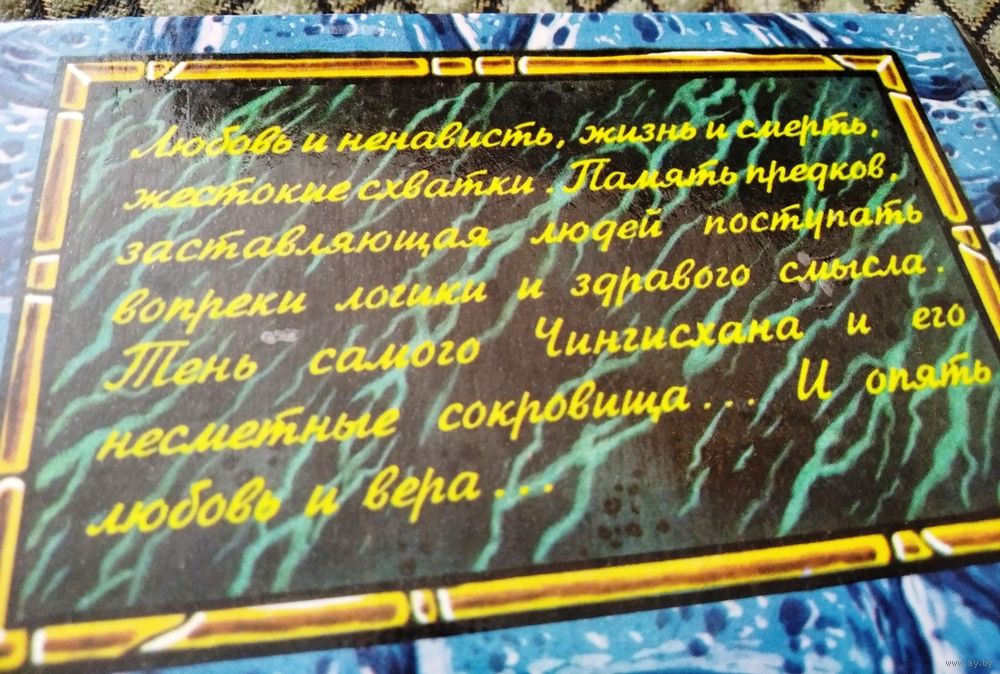 Любовь и ненависть, жизнь и смерть,
жестокие схватки. Память предков,
заставляющая людей поступать
вопреки логики и здравого смысла.
Тень самого Чингисхана и его
несметные сокровища... И опять
любовь и вера...
www.ay.by